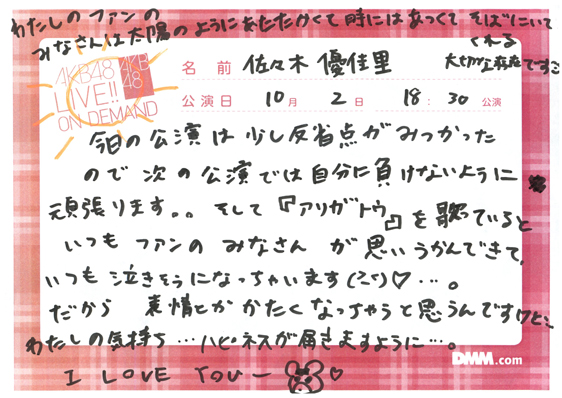 わたしのファンの
みなさんは太陽のようにあたたかくて時にはあつくてそばにいて
くれる
大切な存在ですっ
AKB48
AKB
48
LIVE!!
ON DEMAND
名前 佐々木 優佳里
公演日 10月 2日 18:30 公演
今日の公演は少し反省点がみつかった
ので次の公演では自分に負けないように
頑張ります。。そして『アリガトウ』を歌っていると
いつもファンのみなさんが思いうかんできて、
いつも泣きそうになっちゃいます
♡…。
だから表情とかかたくなっちゃうと思うんですけど…
わたしの気持ち…ハピネスが届きますように…。
I LOVE YOUー ♡
DMM.com